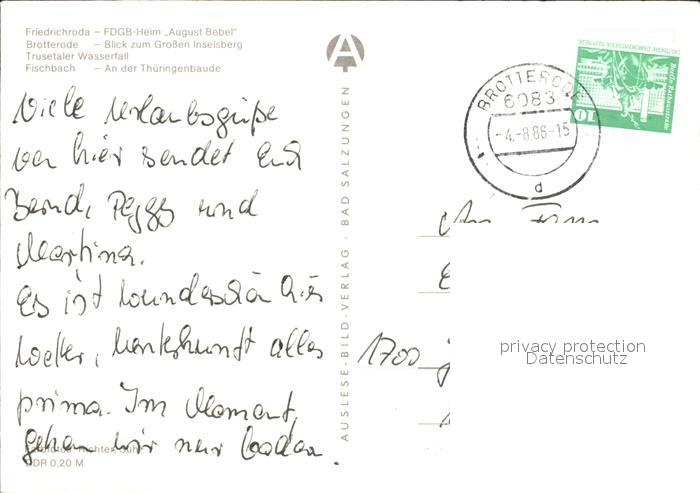 Friedrichroda – FDGB-Heim „August Bebel"
Brotterode – Blick zum Großen Inselsberg
Trusetaler Wasserfall
Fischbach – An der Thüringenbaude
Viele Urlaubsgrüße
von hier sendet Euch
Bernd, Peggy und
Martina.
Es ist wunderschön hier
Wetter, Unterkunft alles
prima. Im Moment,
gehen wir nur baden.
DDR 0,20 M
AUSLESE-BILD-VERLAG · BAD SALZUNGEN
A
BROTTERODE
6083
-4.-8.86-15
d
DEUTSCHE DEMOKRATISCHE REPUBLIK
10
An Fam
1700
privacy protection
Datenschutz